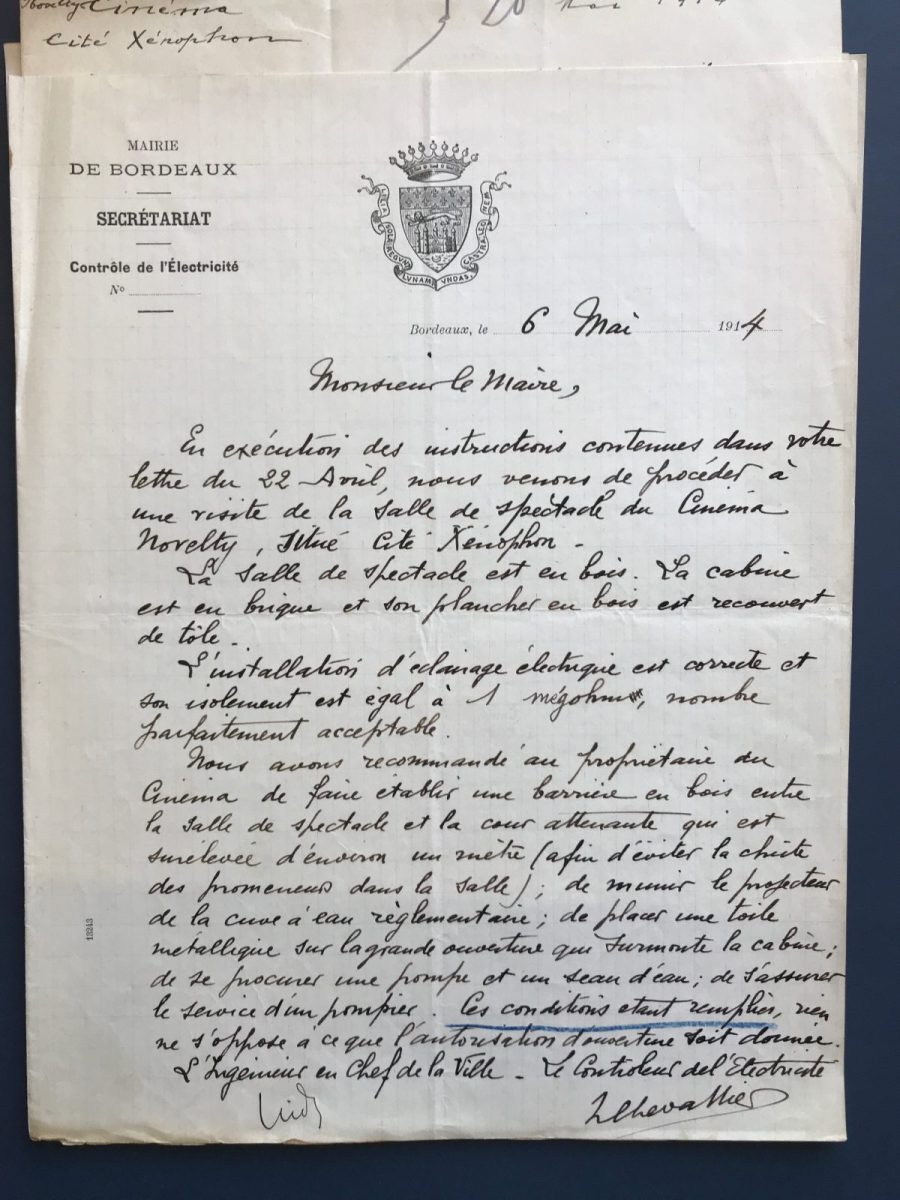 Novelty Cinéma
Cité Xénophon
20 Mai 1914
MAIRIE
DE BORDEAUX
SECRÉTARIAT
Contrôle de l'Électricité
No
LILIA SOLA REGUNT LUNAM UNDAS CASTRA LEONEM
Bordeaux, le 6 Mai 1914
Monsieur le Maire,
En exécution des instructions contenues dans votre
lettre du 22 Avril, nous venons de procéder à
une visite de la salle de spectacle du Cinéma
Novelty, situé Cité Xénophon -
La salle de spectacle est en bois. La cabine
est en brique et son plancher en bois est recouvert
de tôle -
L'installation d'éclairage électrique est correcte et
son isolement est égal à 1 mégohm, nombre
parfaitement acceptable.
Nous avons recommandé au propriétaire du
Cinéma de faire établir une barrière en bois entre
la salle de spectacle et la cour attenante qui est
surélevée d'environ un mètre (afin d'éviter la chute
des promeneurs dans la salle); de munir le projecteur
de la cuve à eau règlementaire; de placer une toile
métallique sur la grande ouverture que surmonte la cabine;
de se procurer une pompe et un seau d'eau; de s'assurer
le service d'un pompier. Ces conditions etant remplies, rien
ne s'oppose a ce que l'autorisation d'ouverture soit donnée.
L'Ingénieur en Chef de la Ville - Le Controleur de l'Electricité
LChevallier
13243